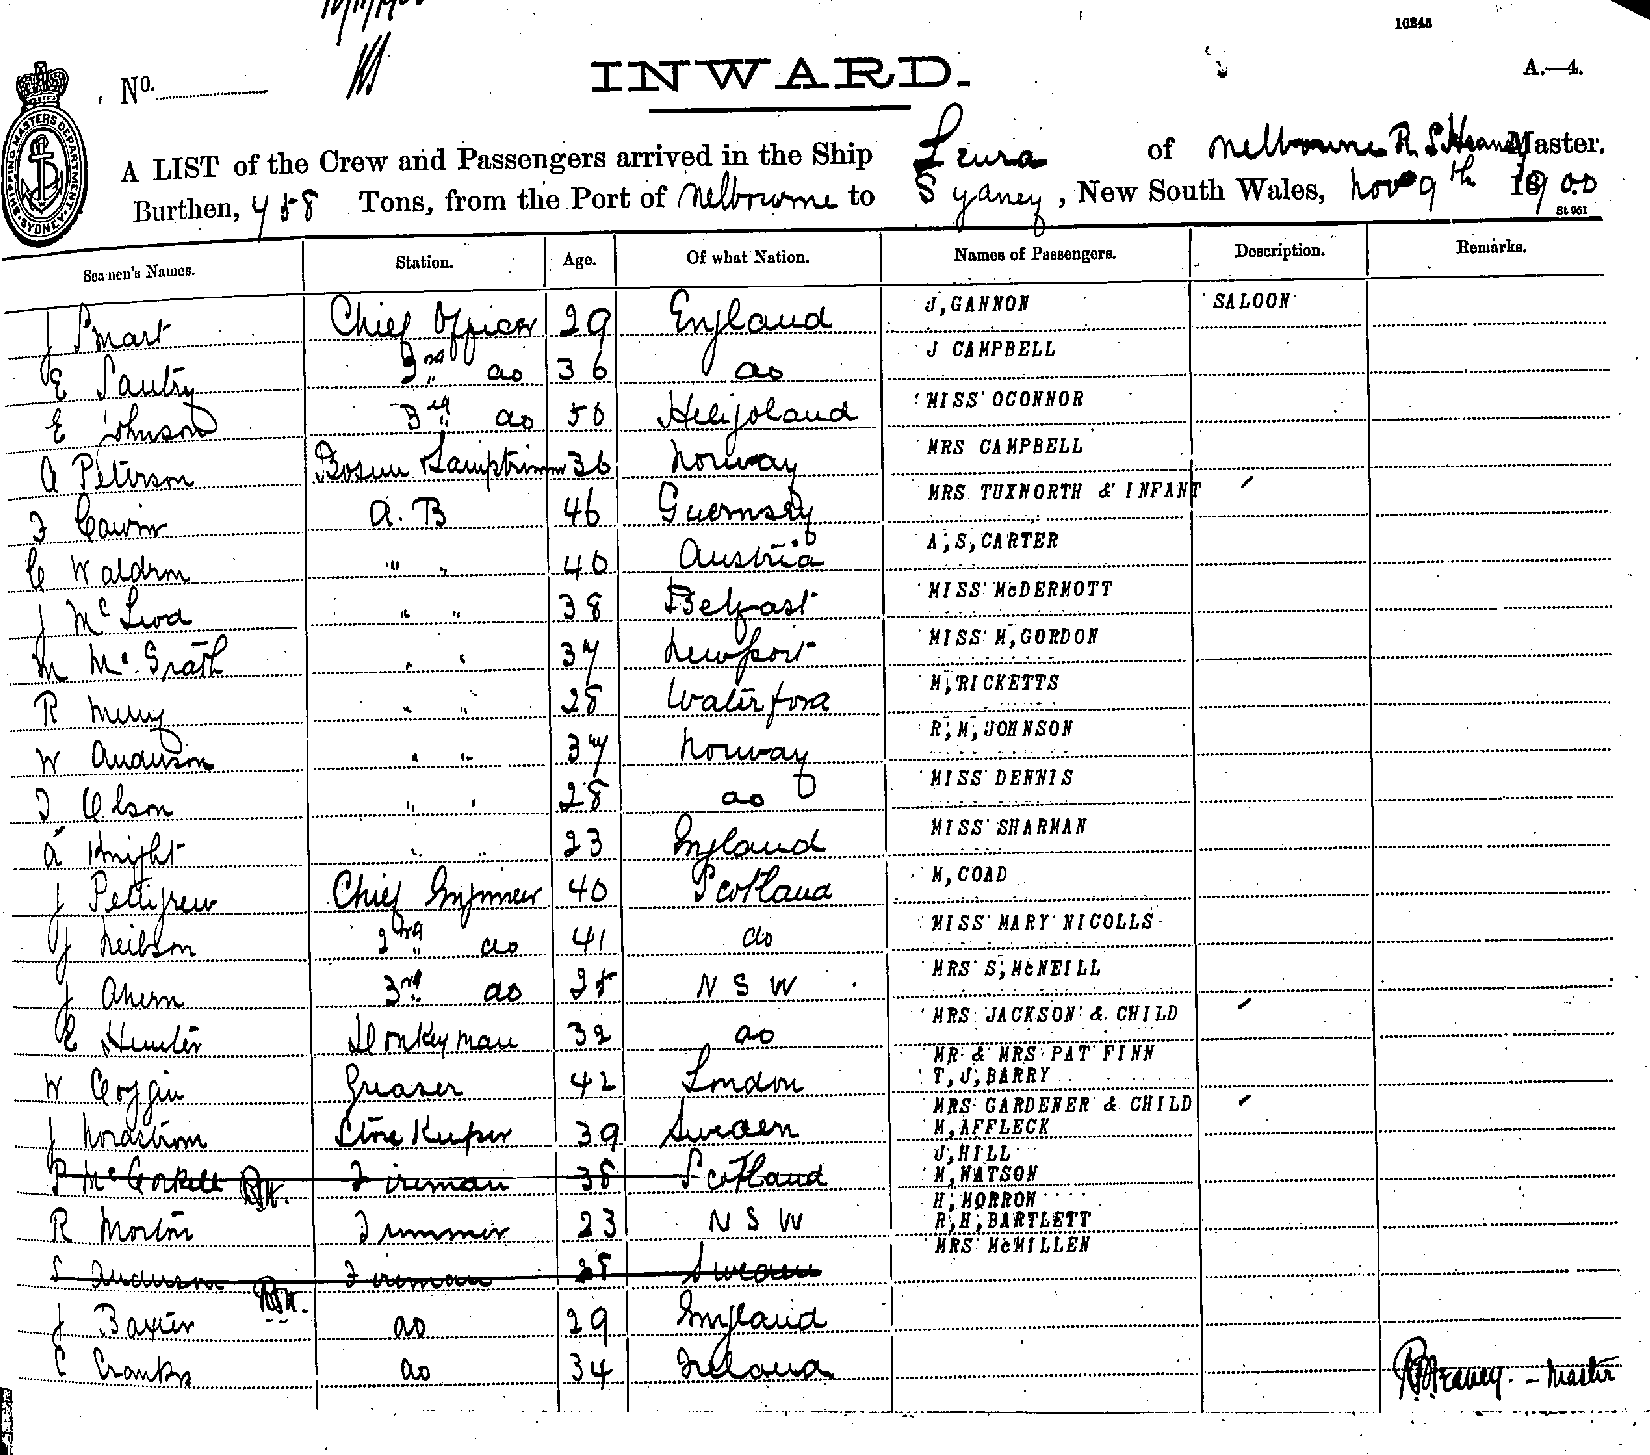 10/11/1900
10248
No.
INWARD.
A.—4.
SHIPPING MASTERS DEPARTMENT SYDNEY
A LIST of the Crew and Passengers arrived in the Ship Leura of Melbourne R S Heaney Master.
Burthen, 458 Tons, from the Port of Melbourne to Sydney, New South Wales, Nov 9th 1900
St 961
Seamen's Names. Station. Age. Of what Nation. Names of Passengers. Description. Remarks.
J Smart Chief Officer 29 England J, GANNON SALOON
E Sautry 2nd do 36 do J CAMPBELL
E Johnson 3rd do 50 Heligoland MISS OCONNOR
A Peterson Bosun Lamptrimmr 36 Norway MRS CAMPBELL
46 Guernsey MRS TUXNORTH & INFANT
C Waldron " " 40 Austria A, S, CARTER
J McLeod " " 38 Belfast MISS McDERMOTT
M McGrath " " 37 Newport MISS M, GORDON
R Merry " " 28 Waterford M, RICKETTS
W Anderson " " 37 Norway R, M, JOHNSON
T Olson " " 28 do MISS DENNIS
A Knight " " 23 England MISS SHARMAN
J Pettigrew Chief Engineer 40 Scotland M, COAD
J Neilson 2nd do 41 do MISS MARY NICOLLS
J Ahern 3rd do 25 N S W MRS S, McNEILL
E Hunter Donkeyman 32 do MRS JACKSON & CHILD
MR & MRS PAT FINN
W Coggin Greaser 42 London T, J, BARRY
MRS GARDENER & CHILD
J Nordstrom Storekeeper 39 Sweden M, AFFLECK
J, HILL
P McCorkell Fireman 38 Scotland M, WATSON
H, MORROW
R Morton Trimmer 23 N S W R, H, BARTLETT
MRS McMILLEN
S Anderson Fireman 28 Sweden
J Baxter do 29 England
C Cranks do 34 Ireland
R S Heaney. – Master